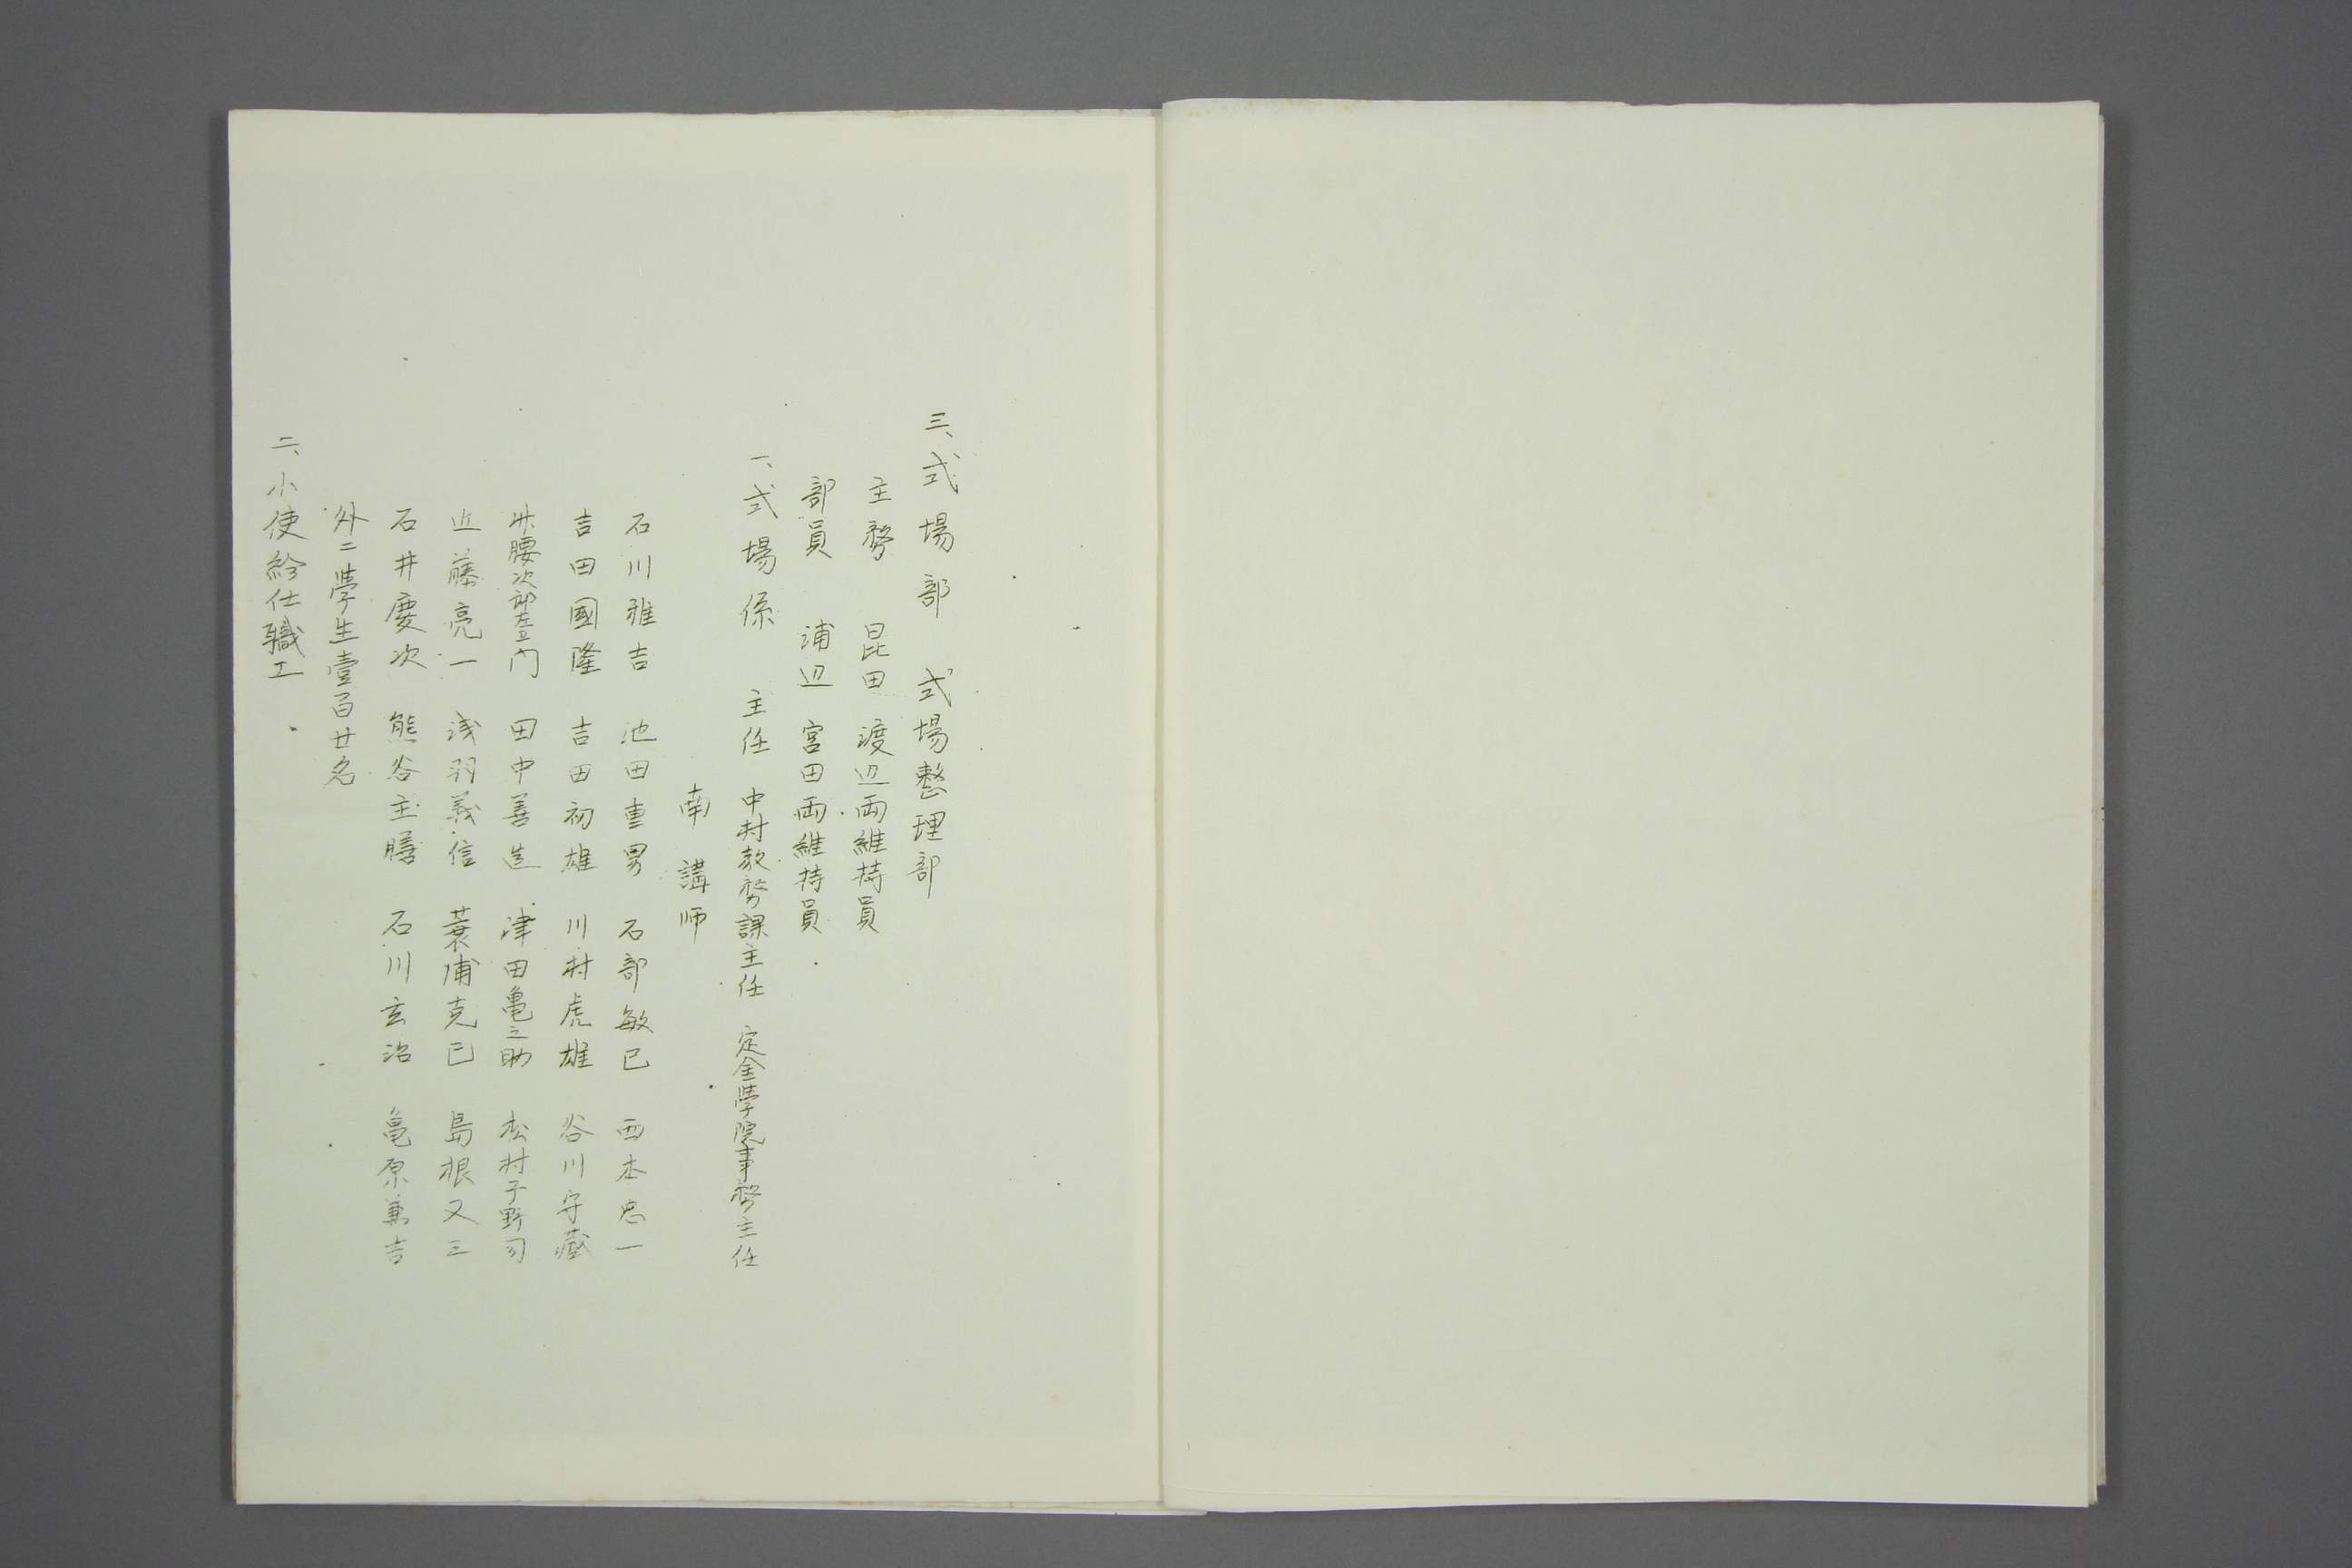 三、式場部　式場整理部
主務　昆田　渡辺両維持員
部員　浦辺　宮田両維持員
一、式場係　主任　中村教務課主任　定金學院事務主任
南　講師
石川雅吉　池田重男　石部敏已　西本忠一
吉田國隆　吉田初雄　川村虎雄　谷川守藏
腰次郎左エ門　田中善造　津田亀之助　松村子野司
近藤亮一　浅羽義信　蓑浦克已　島根又三
石井慶次　熊谷主膳　石川玄治　亀原兼吉
外ニ學生壹百廿名
二、小使給仕職工